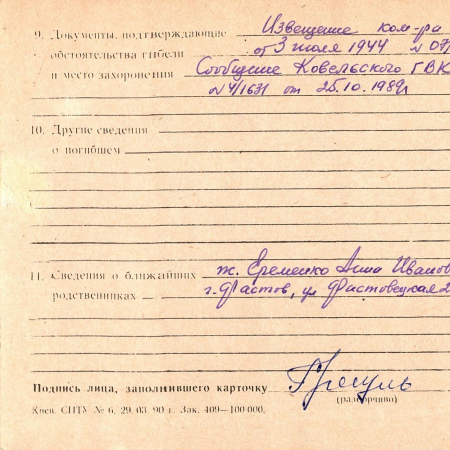 9. Документы, подтверждающие Извещение ком-ра
обстоятельства гибели от 3 июля 1944 № 071
и место захоронения Сообщение Ковельского ГВК
№ 4/1631 от 25.10.1989г
10. Другие сведения
о погибшем
11. Сведения о ближайших ж. Еременко Анна Иванов
родственниках г. Фастов, ул Фастовецкая 2
Подпись лица, заполнившего карточку
(разборчиво)
Киев. СПТУ № 6. 29. 03. 90 г. Зак. 409—100 000.